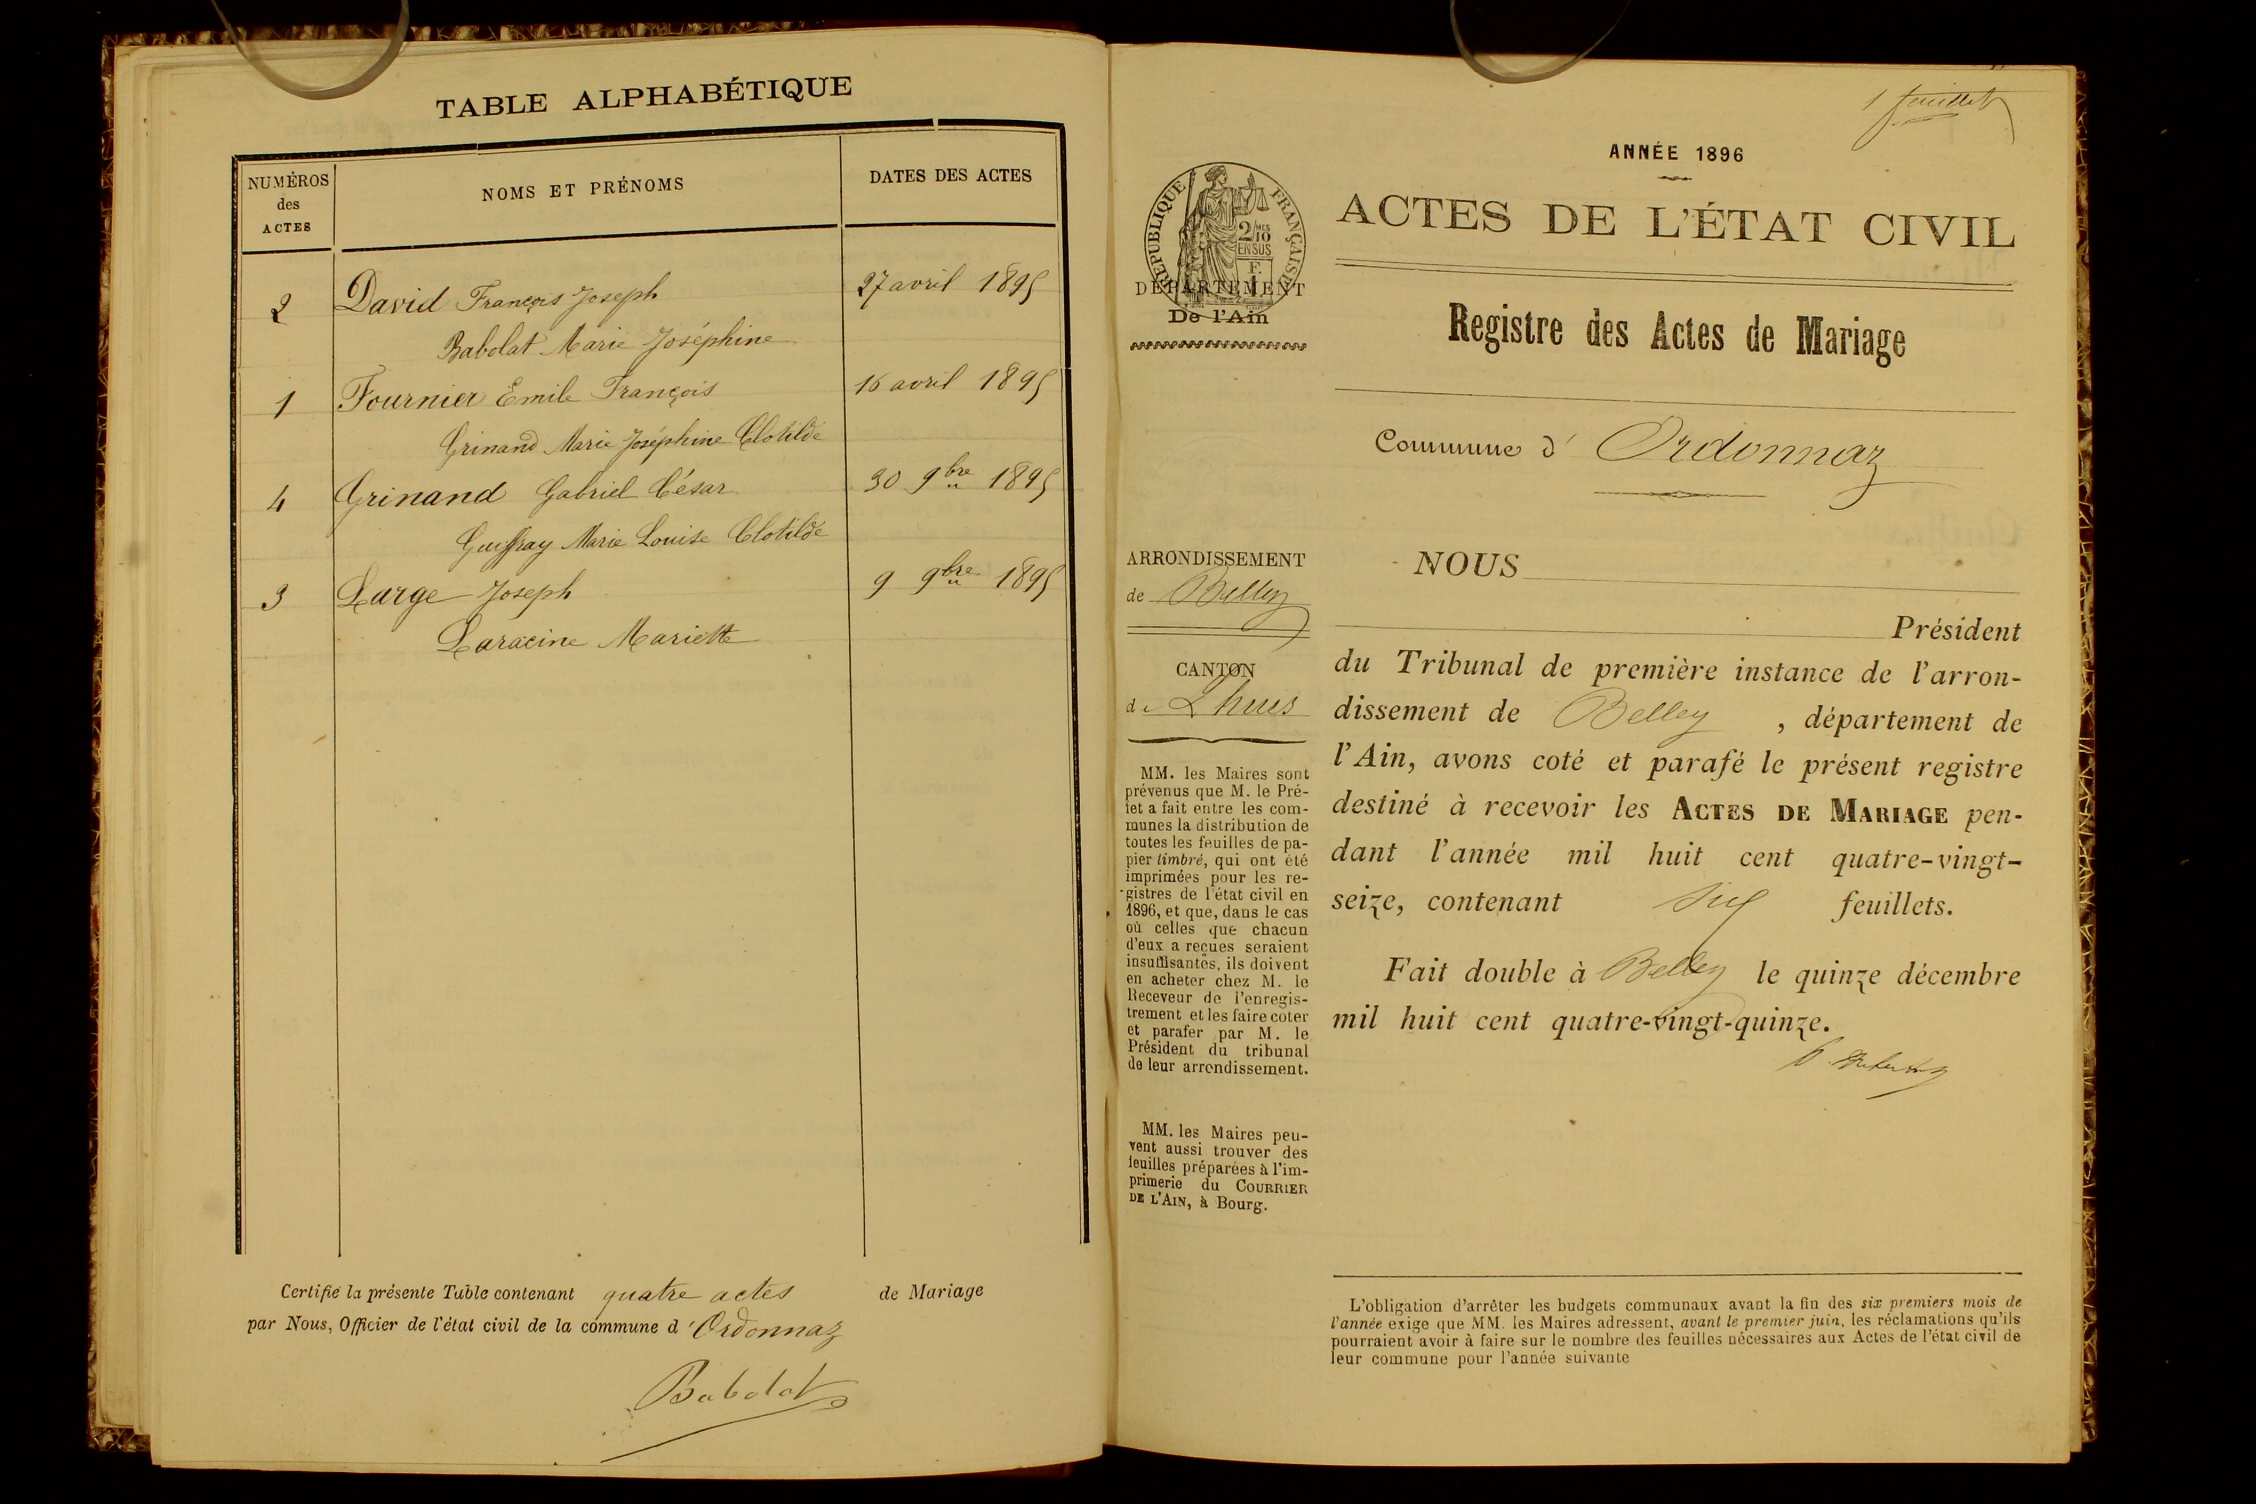 TABLE ALPHABÉTIQUE
NUMÉROS
des
ACTES
NOMS ET PRÉNOMS
DATES DES ACTES
2 David François Joseph 27 avril 1895
Babolat Marie Joséphine
1 Fournier Emile François 16 avril 1895
Grinand Marie Joséphine Clotilde
4 Grinand Gabriel César 30 9bre 1895
Guiffray Marie Louise Clotilde
3 Large Joseph 9 9bre 1895
Laracine Mariette
Certifié la présente Table contenant quatre actes de Mariage
par Nous, Officier de l'état civil de la commune d'Ordonnaz
Babolat
1 feuillet
ANNÉE 1896
ACTES DE L'ÉTAT CIVIL
RÉPUBLIQUE FRANÇAISE
2/10
EN SUS
DÉPARTEMENT
De l'Ain
Registre des Actes de Mariage
Commune d' Ordonnaz
ARRONDISSEMENT
de Belley
CANTON
de Lhuis
MM. les Maires sont
prévenus que M. le Pré-
fet a fait entre les com-
munes la distribution de
toutes les feuilles de pa-
pier timbré, qui ont été
imprimées pour les re-
gistres de l'état civil en
1896, et que, dans le cas
où celles que chacun
d'eux a reçues seraient
insuffisantes, ils doivent
en acheter chez M. le
Receveur de l'enregis-
trement et les faire coter
et parafer par M. le
Président du tribunal
de leur arrondissement.
MM. les Maires peu-
vent aussi trouver des
feuilles préparées à l'im-
primerie du COURRIER
DE L'AIN, à Bourg.
NOUS
Président
du Tribunal de première instance de l'arron-
dissement de Belley , département de
l'Ain, avons coté et parafé le présent registre
destiné à recevoir les ACTES DE MARIAGE pen-
dant l'année mil huit cent quatre-vingt-
seize, contenant six feuillets.
Fait double à Belley le quinze décembre
mil huit cent quatre-vingt-quinze.
L'obligation d'arrêter les budgets communaux avant la fin des six premiers mois de
l'année exige que MM. les Maires adressent, avant le premier juin, les réclamations qu'ils
pourraient avoir à faire sur le nombre des feuilles nécessaires aux Actes de l'état civil de
leur commune pour l'année suivante